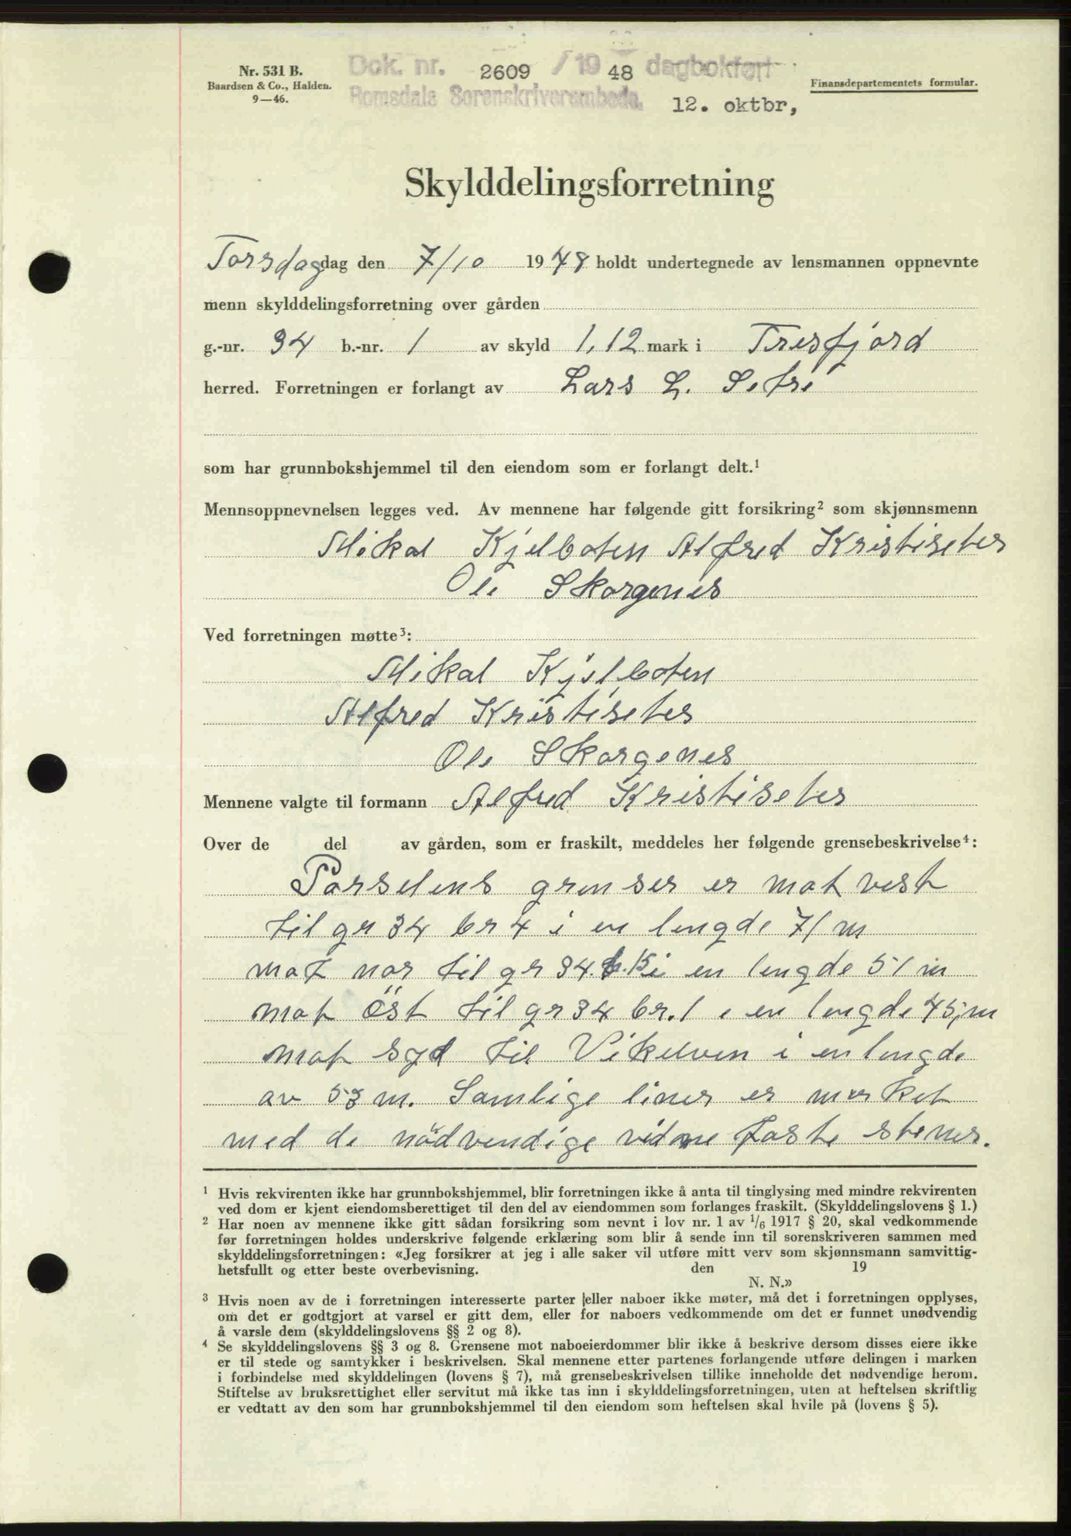 Nr. 531 B.
Baardsen & Co., Halden.
9—46.
Dok. nr. 2609 / 19 48 dagbokført
Romsdals Sorenskriverembede. 12. oktbr,
Finansdepartementets formular.
Skylddelingsforretning
Torsdag dag den 7/10 1948 holdt undertegnede av lensmannen oppnevnte
menn skylddelingsforretning over gården
g.-nr. 34 b.-nr. 1 av skyld 1,12 mark i Tresfjord
herred. Forretningen er forlangt av Lars L. Sefre
som har grunnbokshjemmel til den eiendom som er forlangt delt.¹
Mennsoppnevnelsen legges ved. Av mennene har følgende gitt forsikring² som skjønnsmenn
Mikal Kjelboten Alfred Kristiseter
Ole Skorgenes
Ved forretningen møtte³:
Mikal Kjelboten
Alfred Kristiseter
Ole Skorgenes
Mennene valgte til formann Alfred Kristiseter
Over de del av gården, som er fraskilt, meddeles her følgende grensebeskrivelse⁴:
Parselens grenser er mot vest
til gr 34 br 4 i en lengde 71 m
mot nor til gr 34. b. 15 i en lengde 51 m
mot öst til gr 34 br. 1 i en lengde 45,m
mot syd til Vikelven i en lengde
av 53 m. Samlige liner er merket
med de nödvendige vidne faste stener.
¹ Hvis rekvirenten ikke har grunnbokshjemmel, blir forretningen ikke å anta til tinglysing med mindre rekvirenten
ved dom er kjent eiendomsberettiget til den del av eiendommen som forlanges fraskilt. (Skylddelingslovens § 1.)
² Har noen av mennene ikke gitt sådan forsikring som nevnt i lov nr. 1 av 1/6 1917 § 20, skal vedkommende
før forretningen holdes underskrive følgende erklæring som blir å sende inn til sorenskriveren sammen med
skylddelingsforretningen: «Jeg forsikrer at jeg i alle saker vil utføre mitt verv som skjønnsmann samvittig-
hetsfullt og etter beste overbevisning. den 19
N. N.»
³ Hvis noen av de i forretningen interesserte parter eller naboer ikke møter, må det i forretningen opplyses,
om det er godtgjort at varsel er gitt dem, eller for naboers vedkommende om det er funnet unødvendig
å varsle dem (skylddelingslovens §§ 2 og 8).
⁴ Se skylddelingslovens §§ 3 og 8. Grensene mot naboeierdommer blir ikke å beskrive dersom disses eiere ikke
er til stede og samtykker i beskrivelsen. Skal mennene etter partenes forlangende utføre delingen i marken
i forbindelse med skylddelingen (lovens § 7), må grensebeskrivelsen tillike inneholde det nødvendige herom.
Stiftelse av bruksrettighet eller servitut må ikke tas inn i skylddelingsforretningen, uten at heftelsen skriftlig
er vedtatt av den som har grunnbokshjemmel til den eiendom som heftelsen skal hvile på (lovens § 5).